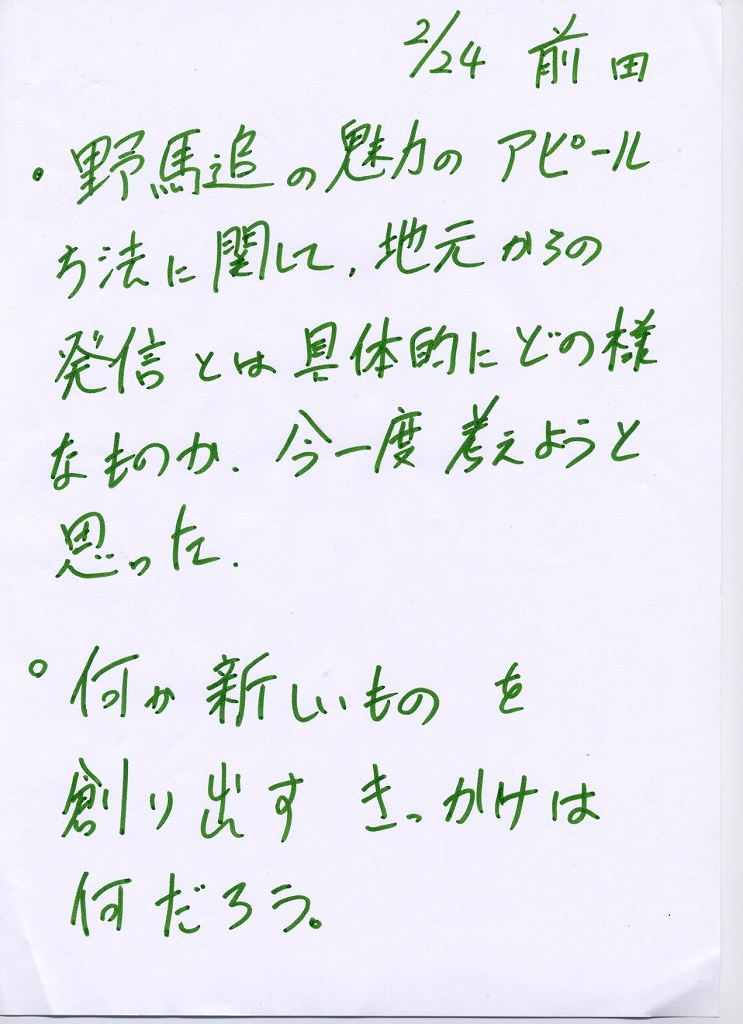 2/24 前田
・野馬追の魅力の アピール
方法に関して、地元からの
発信とは具体的にどの様
なものか、今一度考えようと
思った。
○何か新しいもの を
創り出す きっかけは
何だろう。